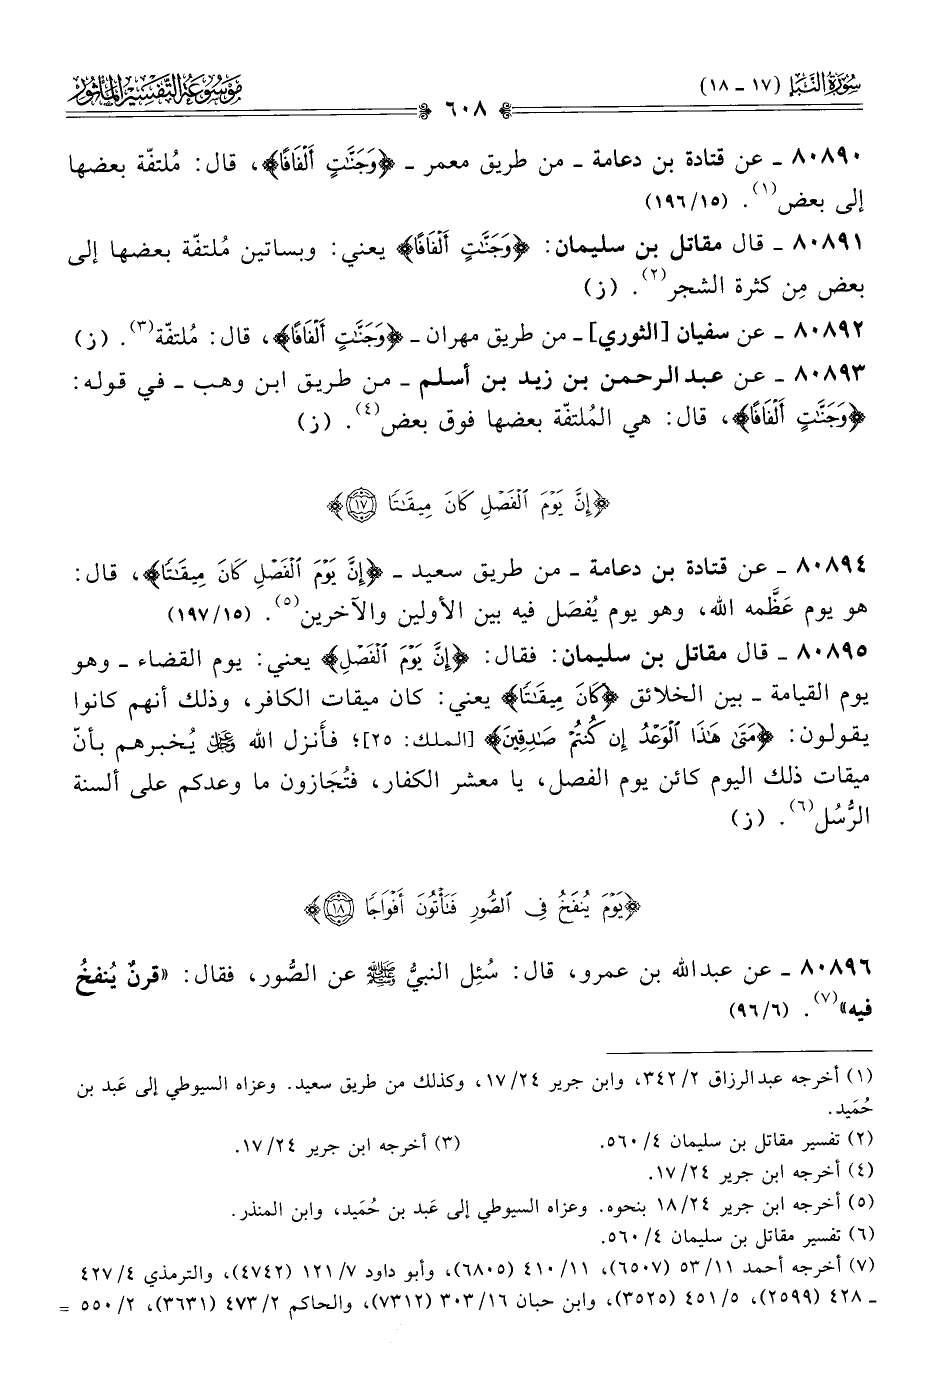 سُورَةُ النَّبَإِ (١٧ - ١٨)
٦٠٨
مَوْسُوعَةُ التَّفْسِيرِ المَأْثُورِ
٨٠٨٩٠ ـ عن قتادة بن دعامة ـ من طريق معمر ـ ﴿وَجَنَّٰتٍ أَلْفَافًا﴾، قال: مُلتفّة بعضها
إلى بعض(١). (١٩٦/١٥)
٨٠٨٩١ ـ قال مقاتل بن سليمان: ﴿وَجَنَّٰتٍ أَلْفَافًا﴾ يعني: وبساتين مُلتفّة بعضها إلى
بعض مِن كثرة الشجر(٢). (ز)
٨٠٨٩٢ ـ عن سفيان [الثوري] ـ من طريق مهران ـ ﴿وَجَنَّٰتٍ أَلْفَافًا﴾، قال: مُلتفّة(٣). (ز)
٨٠٨٩٣ ـ عن عبد الرحمن بن زيد بن أسلم ـ من طريق ابن وهب ـ في قوله:
﴿وَجَنَّٰتٍ أَلْفَافًا﴾، قال: هي المُلتفّة بعضها فوق بعض(٤). (ز)
﴿إِنَّ يَوْمَ ٱلْفَصْلِ كَانَ مِيقَٰتًا ۝١٧﴾
٨٠٨٩٤ ـ عن قتادة بن دعامة ـ من طريق سعيد ـ ﴿إِنَّ يَوْمَ ٱلْفَصْلِ كَانَ مِيقَٰتًا﴾، قال:
هو يوم عَظَّمه الله، وهو يوم يُفصَل فيه بين الأولين والآخرين(٥). (١٩٧/١٥)
٨٠٨٩٥ ـ قال مقاتل بن سليمان: فقال: ﴿إِنَّ يَوْمَ ٱلْفَصْلِ﴾ يعني: يوم القضاء ـ وهو
يوم القيامة ـ بين الخلائق ﴿كَانَ مِيقَٰتًا﴾ يعني: كان ميقات الكافر، وذلك أنهم كانوا
يقولون: ﴿مَتَىٰ هَٰذَا ٱلْوَعْدُ إِن كُنتُمْ صَٰدِقِينَ﴾ [الملك: ٢٥]؛ فأنزل الله ﷻ يُخبرهم بأنّ
ميقات ذلك اليوم كائن يوم الفصل، يا معشر الكفار، فتُجازون ما وعدكم على ألسنة
الرُّسُل(٦). (ز)
﴿يَوْمَ يُنفَخُ فِى ٱلصُّورِ فَتَأْتُونَ أَفْوَاجًا ۝١٨﴾
٨٠٨٩٦ ـ عن عبدالله بن عمرو، قال: سُئِل النبيُّ ﷺ عن الصُّور، فقال: «قرنٌ يُنفخُ
فيه»(٧). (٩٦/٦)
(١) أخرجه عبدالرزاق ٣٤٢/٢، وابن جرير ١٧/٢٤، وكذلك من طريق سعيد. وعزاه السيوطي إلى عَبد بن
حُمَيد.
(٢) تفسير مقاتل بن سليمان ٥٦٠/٤. (٣) أخرجه ابن جرير ١٧/٢٤.
(٤) أخرجه ابن جرير ١٧/٢٤.
(٥) أخرجه ابن جرير ١٨/٢٤ بنحوه. وعزاه السيوطي إلى عَبد بن حُمَيد، وابن المنذر.
(٦) تفسير مقاتل بن سليمان ٥٦٠/٤.
(٧) أخرجه أحمد ٥٣/١١ (٦٥٠٧)، ٤١٠/١١ (٦٨٠٥)، وأبو داود ١٢١/٧ (٤٧٤٢)، والترمذي ٤٢٧/٤
ـ ٤٢٨ (٢٥٩٩)، ٤٥١/٥ (٣٥٢٥)، وابن حبان ٣٠٣/١٦ (٧٣١٢)، والحاكم ٤٧٣/٢ (٣٦٣١)، ٥٥٠/٢ =